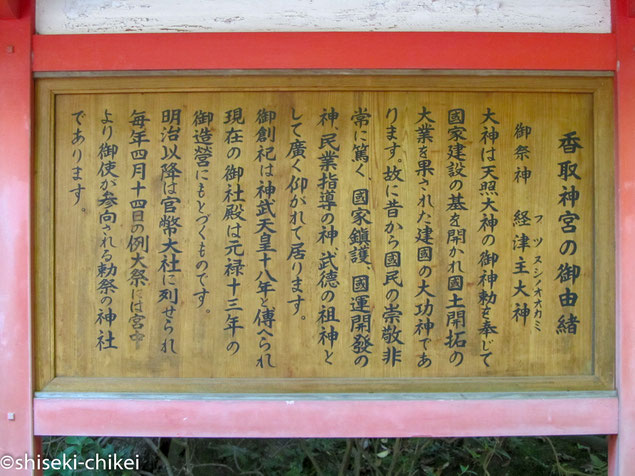 香取神宮の御由緒
御祭神 経津主大神
フツヌシノオオカミ
大神は天照大神の御神勅を奉じて
國家建設の基を開かれ國土開拓の
大業を果された建國の大功神であ
ります。故に昔から國民の崇敬非
常に篤く、國家鎮護、國運開發の
神、民業指導の神、武徳の祖神と
して廣く仰がれて居ります。
御創祀は神武天皇十八年と傳へられ
現在の御社殿は元禄十三年の
御造營にもとづくものです。
明治以降は官幣大社に列せられ
毎年四月十四日の例大祭には宮中
より御使が参向される勅祭の神社
であります。
©shiseki-chikei